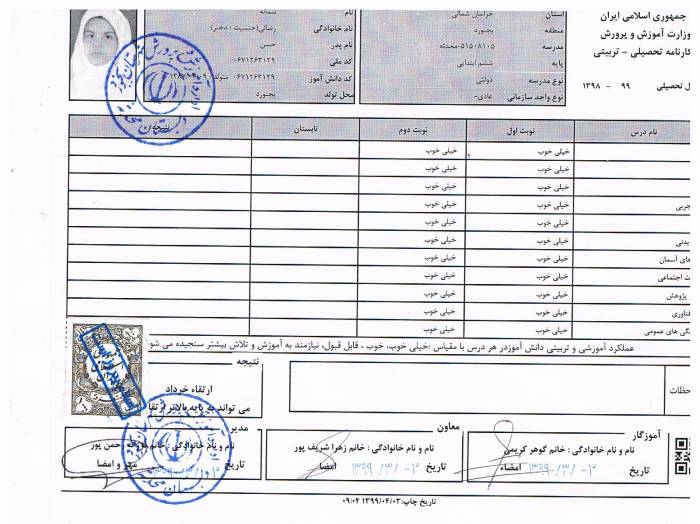 جمهوری اسلامی ایران
وزارت آموزش و پرورش
کارنامه تحصیلی - تربیتی
ل تحصیلی ۹۹ - ۱۳۹۸
استان خراسان شمالی
منطقه بجنورد
مدرسه ۵۱۵۰۸۱۰۵-محدثه
پایه ششم ابتدایی
نوع مدرسه دولتی
نوع واحد سازمانی عادی-
نام سمانه
نام خانوادگی رضائی(جنسیت : دختر)
نام پدر حسن
کد ملی ۰۶۷۱۲۶۳۱۲۹
کد دانش آموز ۰۶۷۱۲۶۳۱۲۹ متولد
محل تولد بجنورد
نام درس نوبت اول نوبت دوم تابستان
خیلی خوب خیلی خوب
خیلی خوب خیلی خوب
خیلی خوب خیلی خوب
جربی خیلی خوب خیلی خوب
خیلی خوب خیلی خوب
بدنی خیلی خوب خیلی خوب
های آسمان خیلی خوب خیلی خوب
ت اجتماعی خیلی خوب خیلی خوب
پژوهش خیلی خوب خیلی خوب
فناوری خیلی خوب خیلی خوب
گی های عمومی خیلی خوب خیلی خوب
عملکرد آموزشی و تربیتی دانش آموزدر هر درس با مقیاس :خیلی خوب، خوب ، قابل قبول، نیازمند به آموزش و تلاش بیشتر سنجیده می شو
حظات
نتیجه
ارتقاء خرداد
می تواند به پایه بالاتر ارتقا
آموزگار
نام و نام خانوادگی : خانم گوهر کریمی
تاریخ ۱۳۹۹/۳/۲۰ امضاء
معاون
نام و نام خانوادگی : خانم زهرا شریف پور
تاریخ ۱۳۹۹/۳/۲۰ امضا
مدیر
نام و نام خانوادگی : خانم حمن پور
تاریخ مهر و امضا
تاریخ چاپ:۱۳۹۹/۰۴/۰۳ ۰۹:۰۴